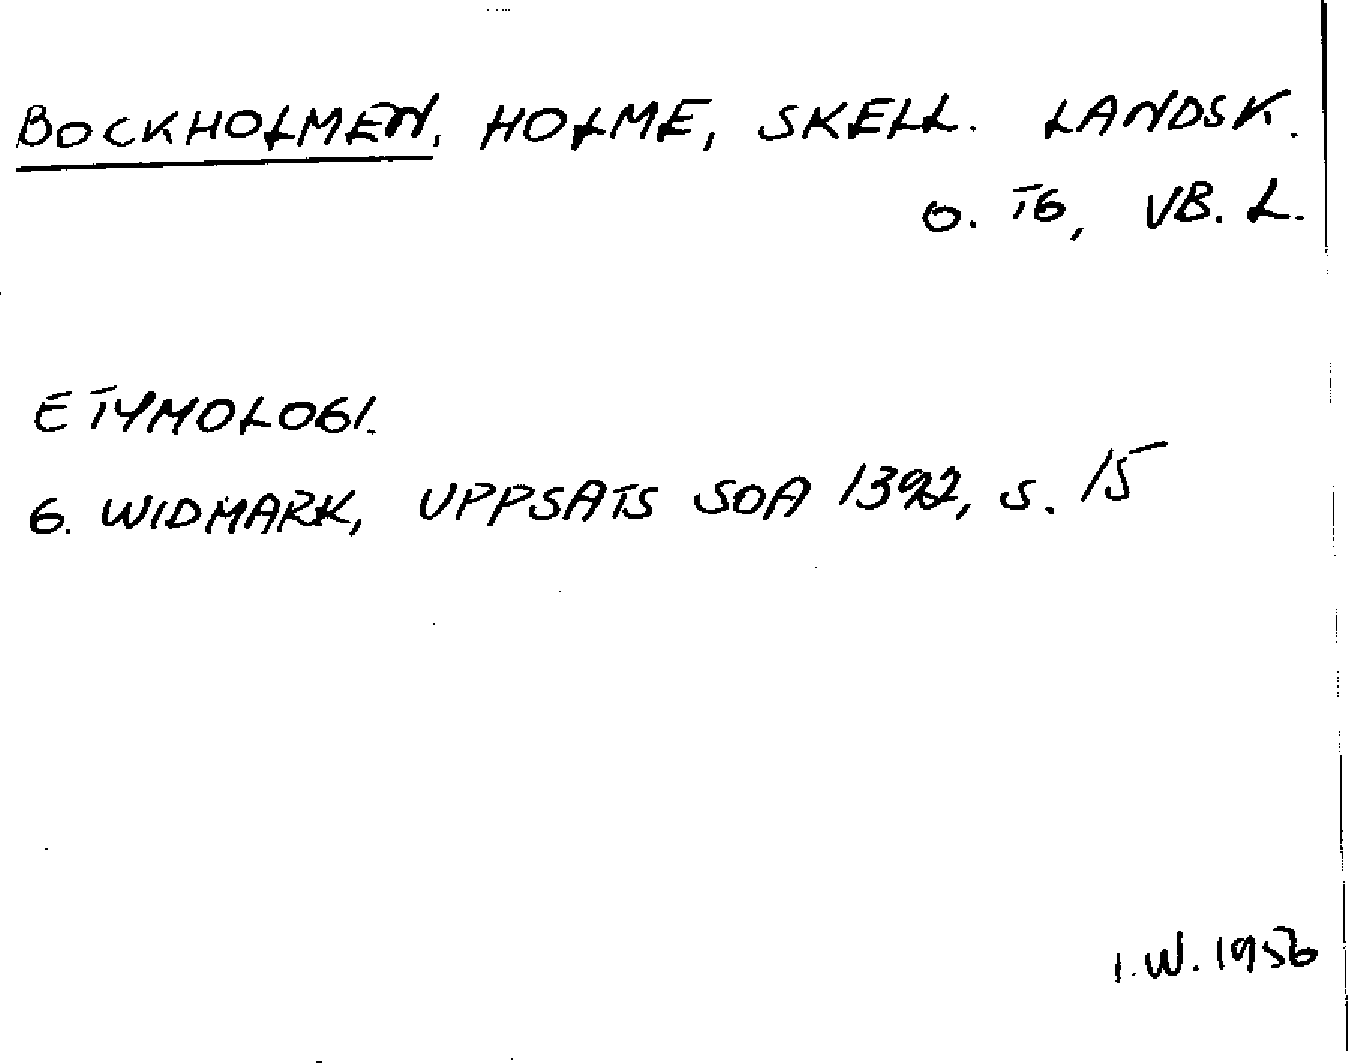 BOCKHOLMEN, HOLME, SKELL. LANDSK.
O. TG, VB. L.
ETYMOLOGI.
G. WIDMARK, UPPSATS SOA 1392, S. 15
I.W. 1956